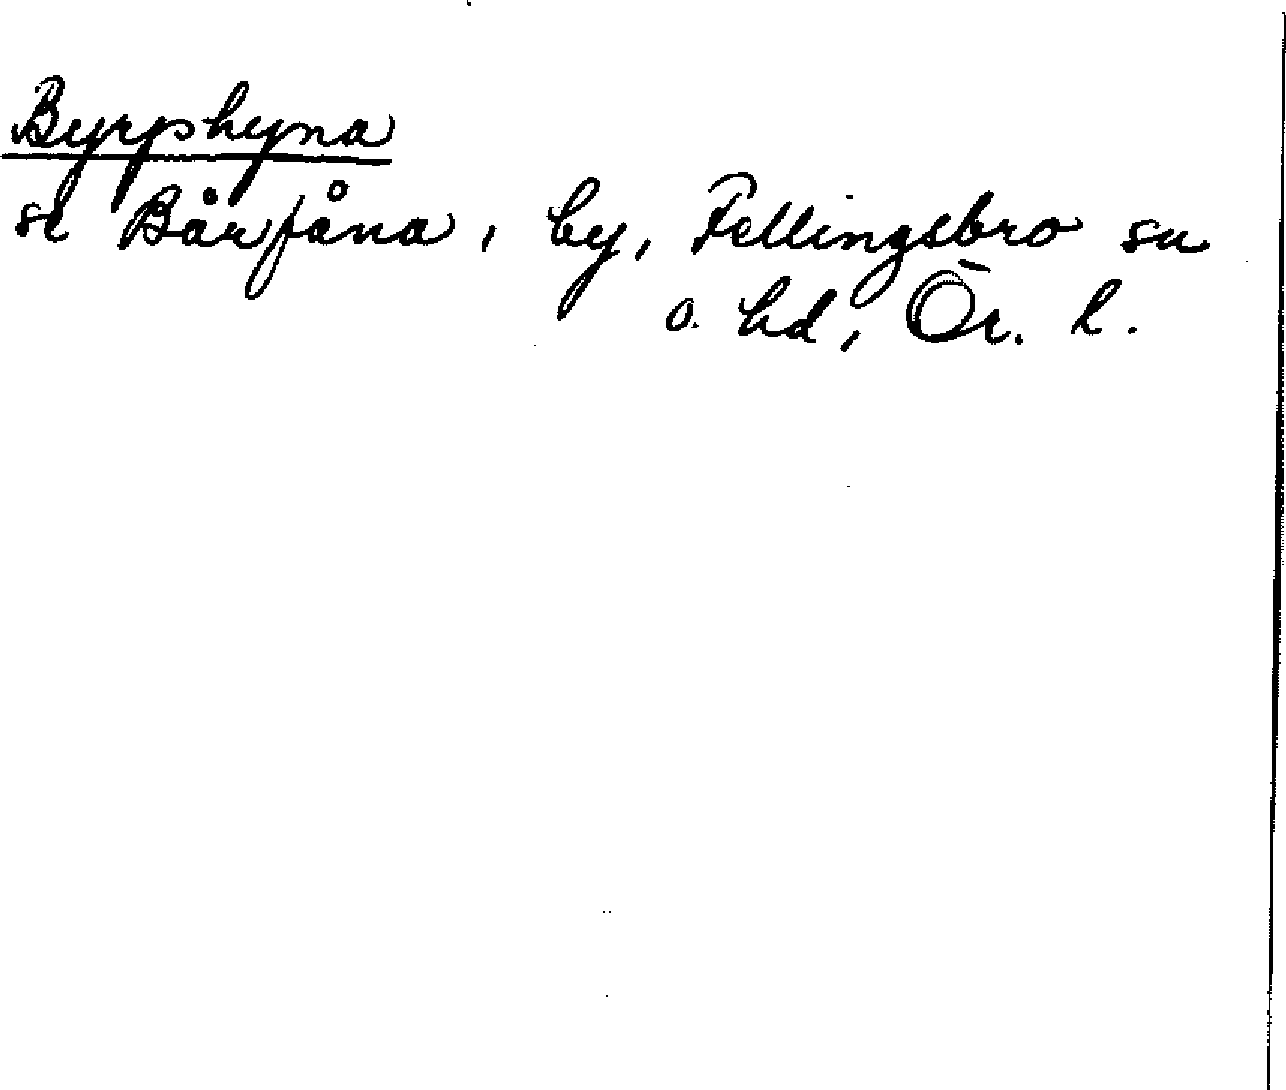 Byrphyna
se Bårfåna, by, Fellingsbro sn
o. hd, Ör. l.